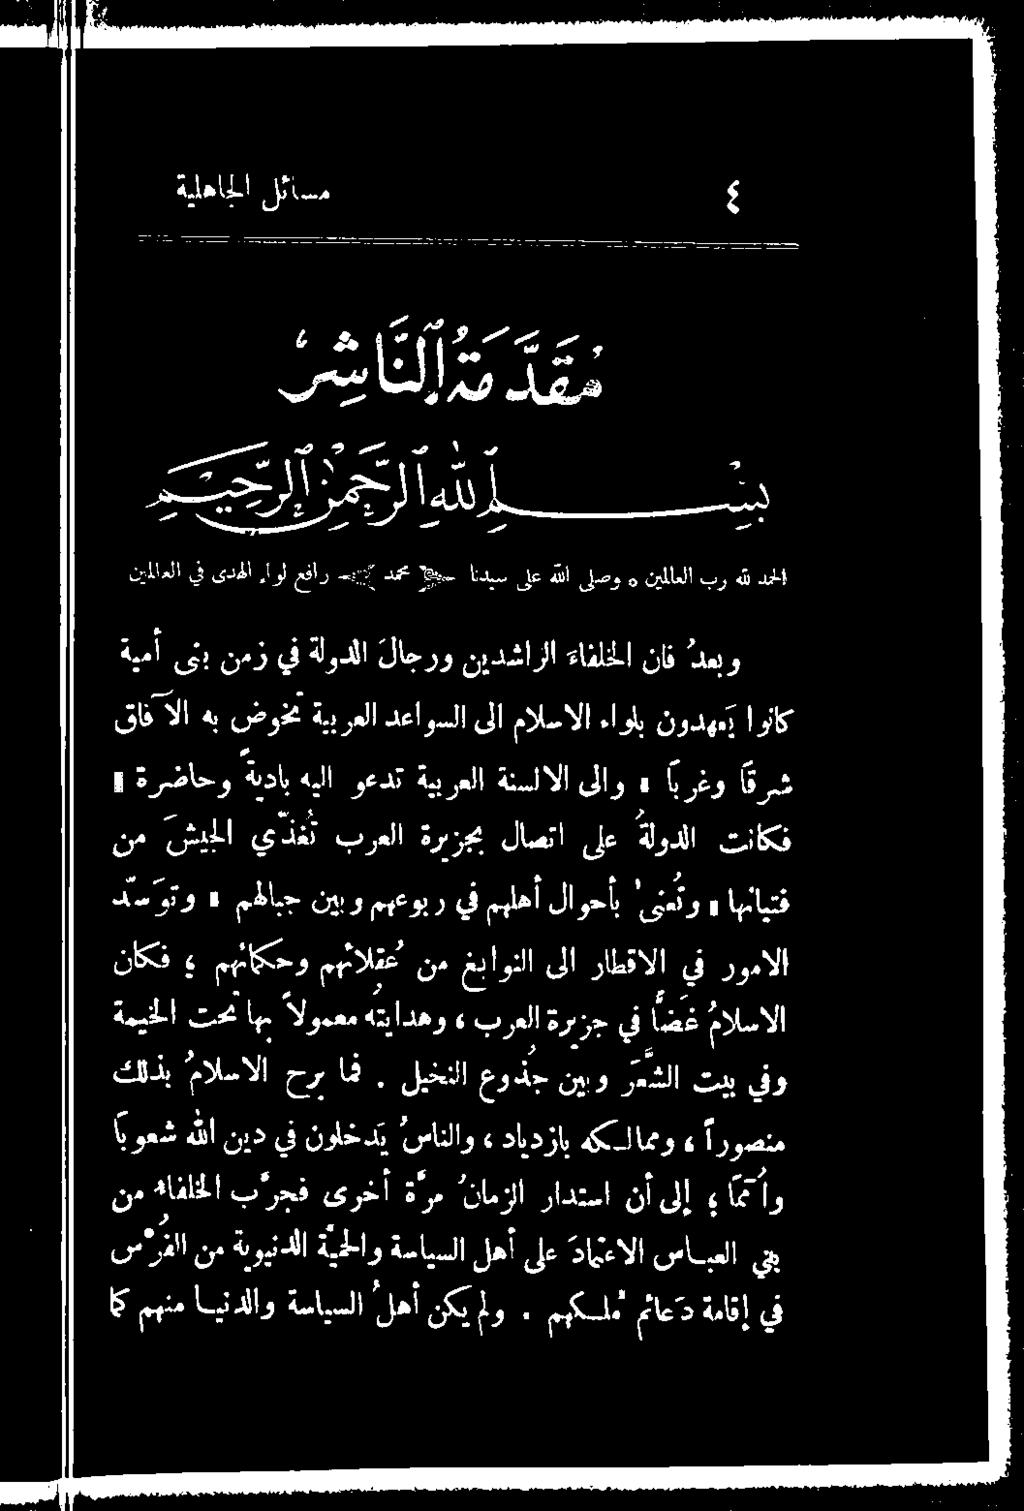 ٤ مسائل الجاهلية
مُقَدَّمَةُ ٱلنَّاشِر
بِسْمِ ٱللَّهِ ٱلرَّحْمٰنِ ٱلرَّحِيمِ
الحمد لله رب العالمين ٥ وصلى الله على سيدنا محمد رافع لواء الهدى في العالمين
وبعدُ فان الخلفاءَ الراشدين ورجالَ الدولة في زمن بنى أمية
كانوا يَعهدون بلواء الاسلام الى السواعد العربية تخوض به الآفاق
شرقاً وغرباً ، والى الالسنة العربية تدعو اليه باديةً وحاضرة ،
فكانت الدولةُ على اتصال بجزيرة العرب تُغذّي الجيشَ من
فتيانها ، وتُعنى بأحوال أهلهم في ربوعهم وبين جبالهم ، وتوَسّد
الامور في الاقطار الى النوابغ من عُقلائهم وحكمائهم ؛ فكان
الاسلامُ غَضّاً في جزيرة العرب ، وهدايتُه معمولاً بها تحت الخيمة
وفي بيت الشَّعَر وبين جُذوع النخيل . فما برح الاسلامُ بذلك
منصوراً ، وممالكه بازدياد ، والناسُ يَدخلون في دين الله شعوباً
وأُمَمًا ؛ إلى أن استدار الزمانُ مرّة أخرى فجرَّب الخلفاء من
بني العباس الاعتمادَ على أهل السياسة والحميَّة الدنيوية من الفُرْس
في إقامة دَعائم مُلكهم . ولم يكن أهلُ السياسة والدنيا منهم كما